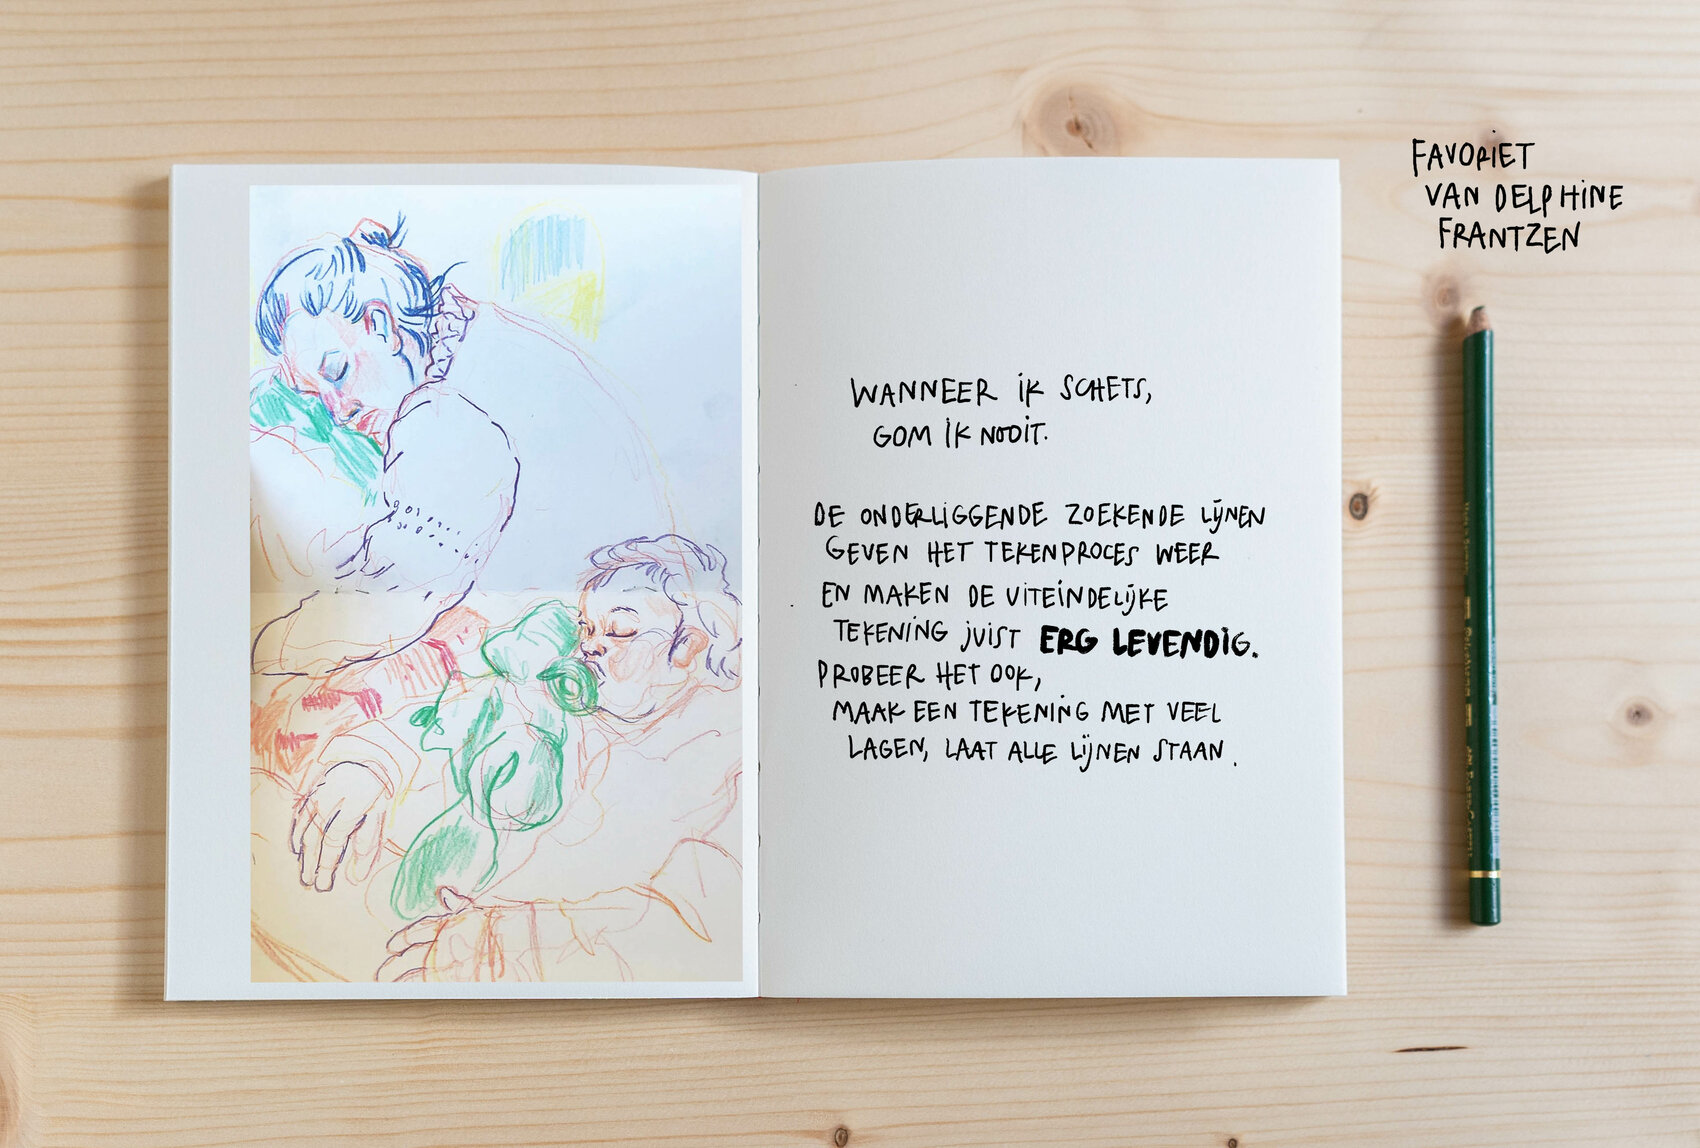 FAVORIET
VAN DELPHINE
FRANTZEN
WANNEER IK SCHETS,
GOM IK NOOIT.
DE ONDERLIGGENDE ZOEKENDE LIJNEN
GEVEN HET TEKENPROCES WEER
EN MAKEN DE UITEINDELIJKE
TEKENING JUIST ERG LEVENDIG.
PROBEER HET OOK,
MAAK EEN TEKENING MET VEEL
LAGEN, LAAT ALLE LIJNEN STAAN.